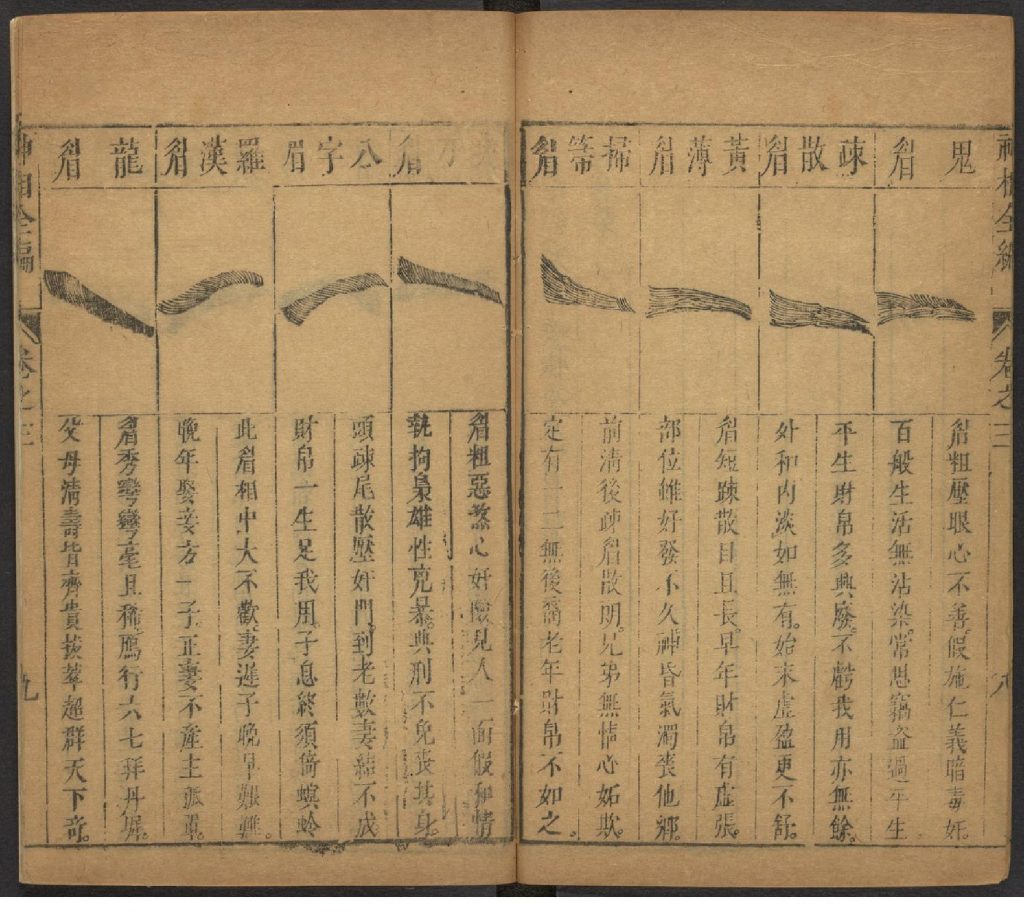 神相全編
卷之三
八
鬼眉
疎散眉
黃薄眉
掃帚眉
眉粗壓眼心不善。假施仁義暗毒奸。
百般生活無沾染。常思竊盜過平生
平生財帛多興廢。不虧我用亦無餘。
外和內淡如無有。始末虛盈更不舒。
眉短疎散目且長。早年財帛有虛張。
部位雖好發不久神昏氣濁喪他鄉。
前清後疎眉散明。兄弟無情心妬欺。
定有一二無後裔老年財帛不如之。
刀眉
八字眉
羅漢眉
龍眉
眉粗惡煞心奸險見人一面假和情
執拘梟雄性克暴。典刑不免喪其身。
頭疎尾散壓奸門。到老數妻結不成
財帛一生足我用。子息終須倚螟蛉
此眉相中大不歡妻遲子晚早艱難。
晚年娶妾方一子。正妻不產主孤單。
眉秀彎彎毫且稀。鴈行六七拜丹墀。
父母清壽皆齊貴。拔萃超群天下奇。
神相全編
卷之三
九